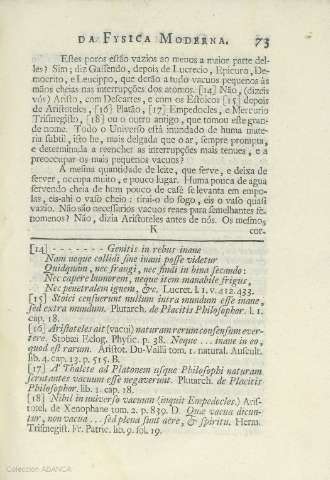 DA FYSICA MODERNA. 73
Estes poros estão vazios ao menos a maior parte del-
les? Sim; diz Gassendo, depois de Lucrecio, Epicuro, De-
mocrito, e Leucippo, que derão a tudo vacuos pequenos ás
mãos cheias nas interrupções dos atomos. [14] Não, (dizeis
vós) Aristo, com Descartes, e com os Estoicos [15] depois
de Aristoteles, [16] Platão, [17] Empedocles, e Mercurio
Trismegisto, [18] ou o outro antigo, que tomou este gran-
de nome. Todo o Universo está inundado de huma mate-
ria subtil, isto he, mais delgada que o ar, sempre prompta,
e determinada a reencher as interrupções mais tenues, e a
preoccupar os mais pequenos vacuos?
A mesma quantidade de leite, que serve, e deixa de
ferver, occupa muito, e pouco lugar. Huma pouca de agua
servendo cheia de hum pouco de café se levanta em empo-
las, eis-ahi o vaso cheio: tirai-o do fogo, eis o vaso quasi
vazio. Não são necessarios vacuos reaes para semelhantes fe-
nomenos? Não, dizia Aristoteles antes de nós. Os mesmos
K cor-
[14] - - - - - - - Genitis in rebus inane
Nam neque collidi sine inani posse videtur
Quidquam, nec frangi, nec findi in bina secando:
Nec capere humorem, neque item manabile frigus,
Nec penetralem ignem, &c. Lucret. l. 1. v. 412. 433.
[15] Stoici censuerunt nullum intra mundum esse inane,
sed extra mundum. Plutarch. de Placitis Philosophor. l. 1.
cap. 18.
[16] Aristoteles ait (vacui) naturam rerum consensum ever-
tere. Stobæi Eclog. Physic. p. 38. Neque ... inane in eo,
quod est rarum. Aristot. Du-Vallii tom. 1. natural. Auscult.
lib. 4. cap. 13. p. 515. B.
[17] A Thalete ad Platonem usque Philosophi naturam
scrutantes vacuum esse negaverunt. Plutarch. de Placitis
Philosophor. lib. 1. cap. 18.
[18] Nihil in universo vacuum (inquit Empedocles.) Aris-
totel. de Xenophane tom. 2. p. 839. D. Quæ vacua dicun-
tur, non vacua ... sed plena sunt aere, & spiritu. Herm.
Trismegist. Fr. Patric. lib. 9. fol. 19.
Colección ADANCA